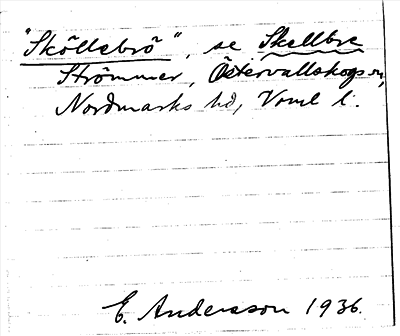 "Sköllebrö", se Skellbre
Strömmer, Östervallskogs sn,
Nordmarks hd, Vrml l.
E. Andersson 1936.